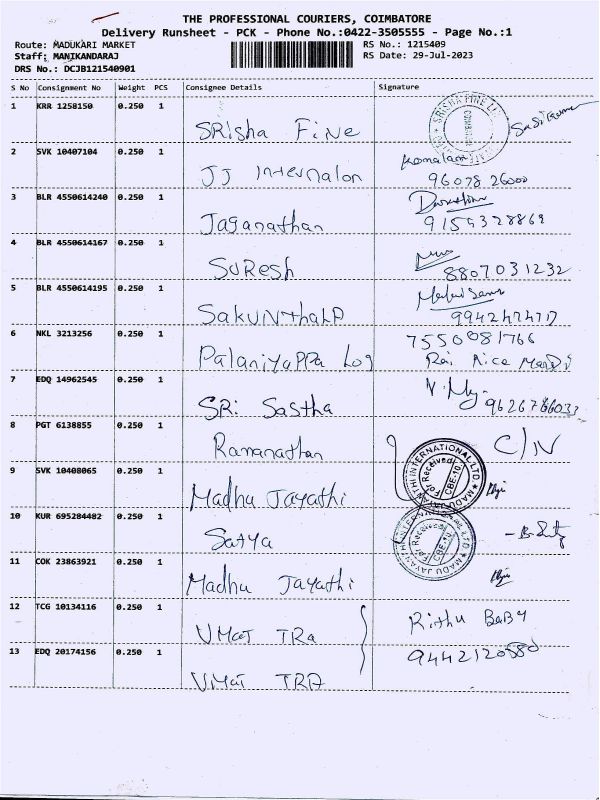 THE PROFESSIONAL COURIERS, COIMBATORE
Delivery Runsheet - PCK - Phone No.:0422-3505555 - Page No.:1
Route: MADUKARI MARKET RS No.: 1215409
Staff: MANIKANDARAJ RS Date: 29-Jul-2023
DRS No.: DCJB121540901
S No Consignment No Weight PCS Consignee Details Signature
1 KRR 1258150 0.250 1
SRisha Fine
2 SVK 10407104 0.250 1
JJ Internalon 96078 26000
3 BLR 4550614240 0.250 1
Jaganathan 9159328869
4 BLR 4550614167 0.250 1
SURESh 8807031232
5 BLR 4550614195 0.250 1
SakUNThaLA
6 NKL 3213256 0.250 1 7550081766
PalaniyaPPa Log Rai Rice Mandi
7 EDQ 14962545 0.250 1
SRi Sastha
8 PGT 6138855 0.250 1
Ramanathan C/N
9 SVK 10408065 0.250 1
Madhu Jayathi
10 KUR 695284482 0.250 1
Satya
11 COK 23863921 0.250 1
Madhu Jayathi
12 TCG 10134116 0.250 1
VMat TRa Rithu BaBy
13 EDQ 20174156 0.250 1 9442120580
VMat TRA
MADU JAYANTHI INTERNATIONAL LTD.
For Received
CBE-10